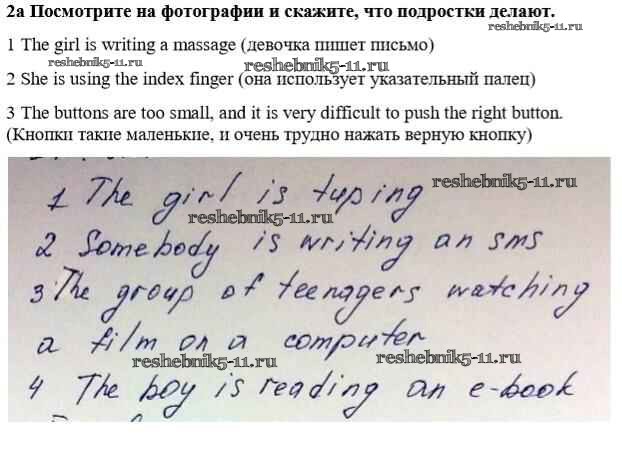 2а Посмотрите на фотографии и скажите, что подростки делают.
1 The girl is writing a massage (девочка пишет письмо)
reshebnik5-11.ru
reshebnik5-11.ru
reshebnik5-11.ru
2 She is using the index finger (она использует указательный палец)
3 The buttons are too small, and it is very difficult to push the right button.
(Кнопки такие маленькие, и очень трудно нажать верную кнопку)
1 The girl is tuping
reshebnik5-11.ru
reshebnik5-11.ru
2 Somebody is writing an sms
3 The group of teenagers watching
a film on a computer
reshebnik5-11.ru
reshebnik5-11.ru
4 The boy is reading an e-book